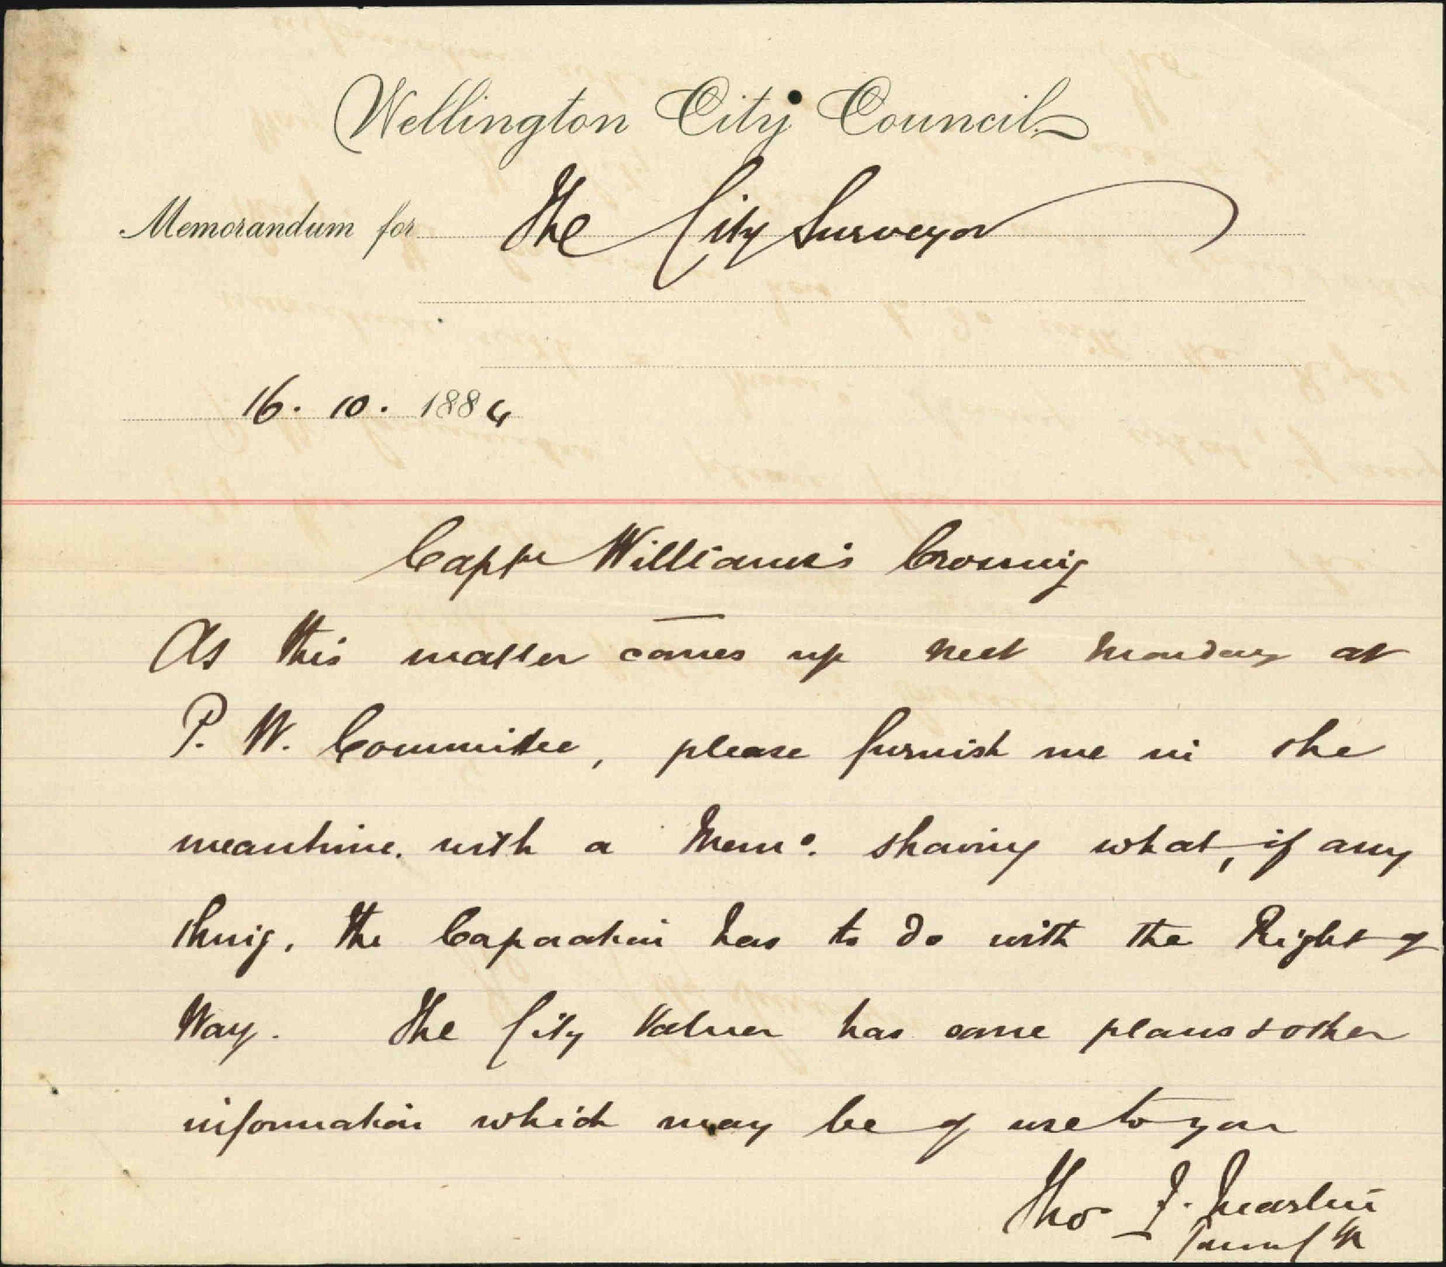 Wellington City Council.
Memorandum for The City Surveyor
16. 10. 1884
Capt Williams's Crossing
As this matter comes up next Monday at
P. W. Committee, please furnish me in the
meantime. with a Memo. showing what, if any
thing, the Corporation has to do with the Right of
Way. The City Valuer has some plans & other
information which may be of use to you
Tho. F. Martin
Town Clk